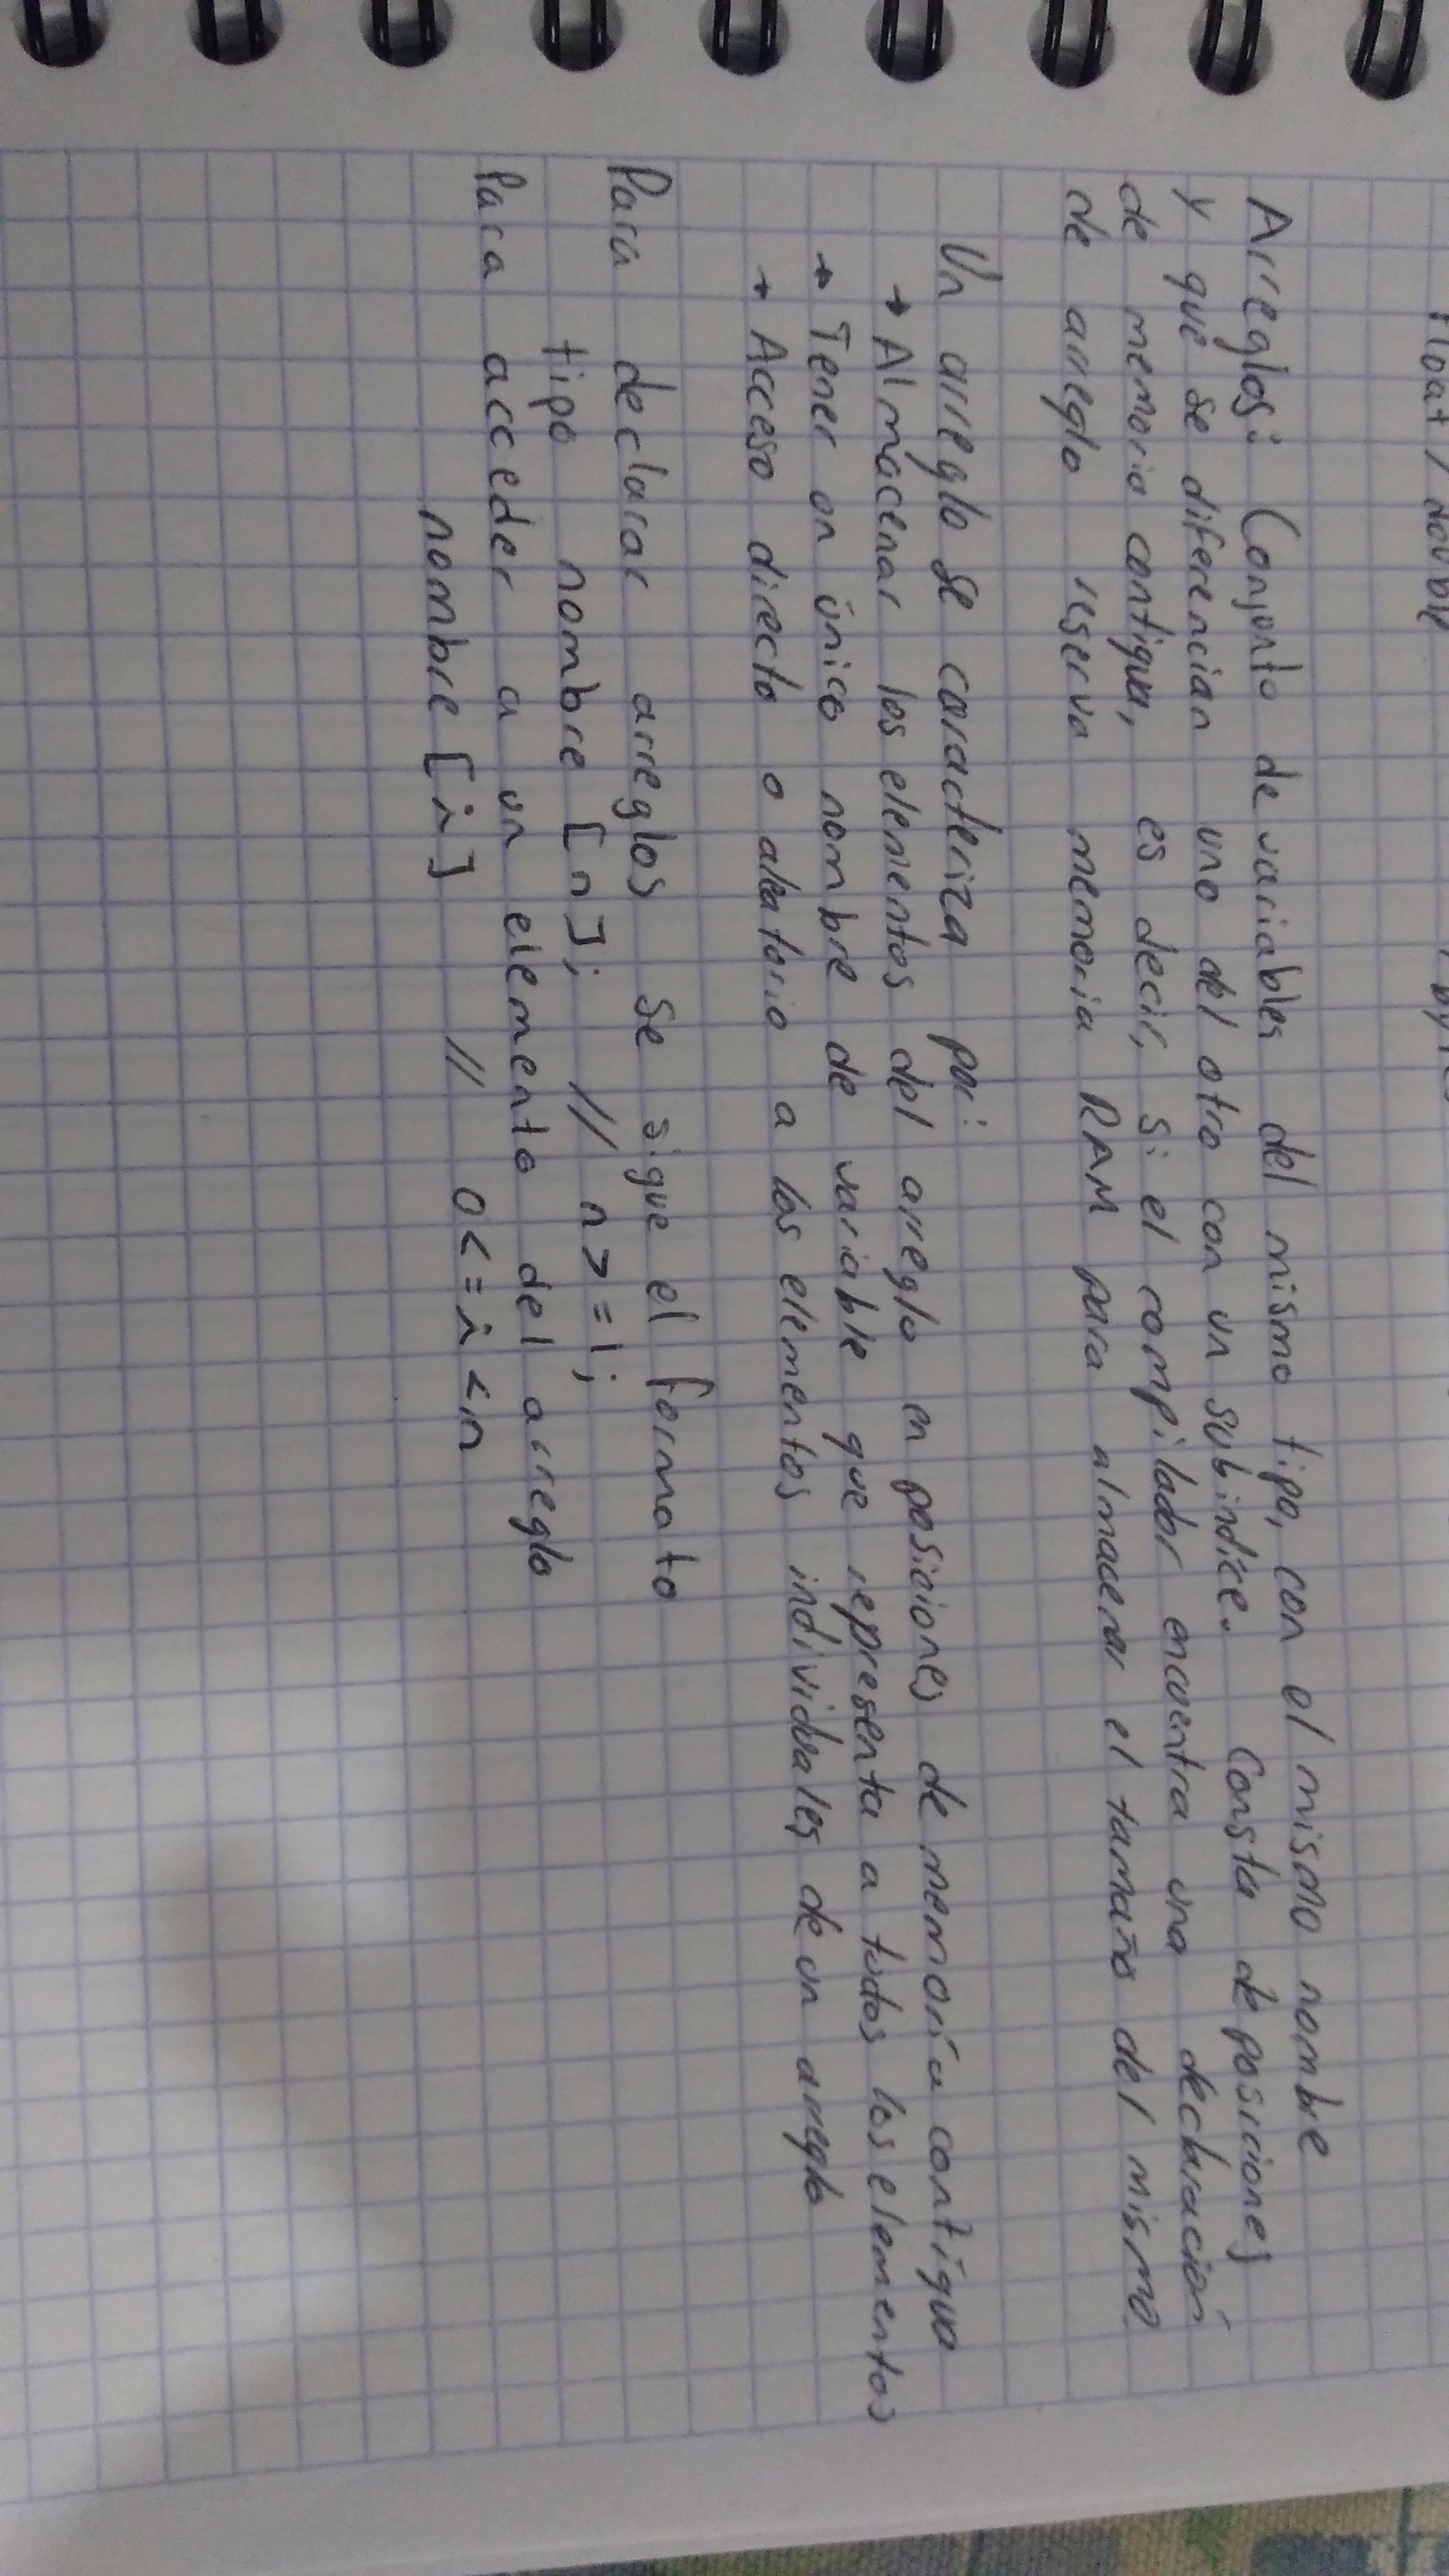 float / double
Arreglos: Conjunto de variables del mismo tipo, con el mismo nombre
y que se diferencian uno del otro con un subíndice. Consta de posiciones
de memoria contigua, es decir, si el compilador encuentra una declaración
de arreglo reserva memoria RAM para almacenar el tamaño del mismo
Un arreglo se caracteriza por:
→ Almacenar los elementos del arreglo en posiciones de memoria contigua
→ Tener un único nombre de variable que representa a todos los elementos
→ Acceso directo o aleatorio a los elementos individuales de un arreglo
Para declarar arreglos se sigue el formato
tipo nombre [n]; // n >= 1;
Para acceder a un elemento del arreglo
nombre [i] // 0 <= i < n